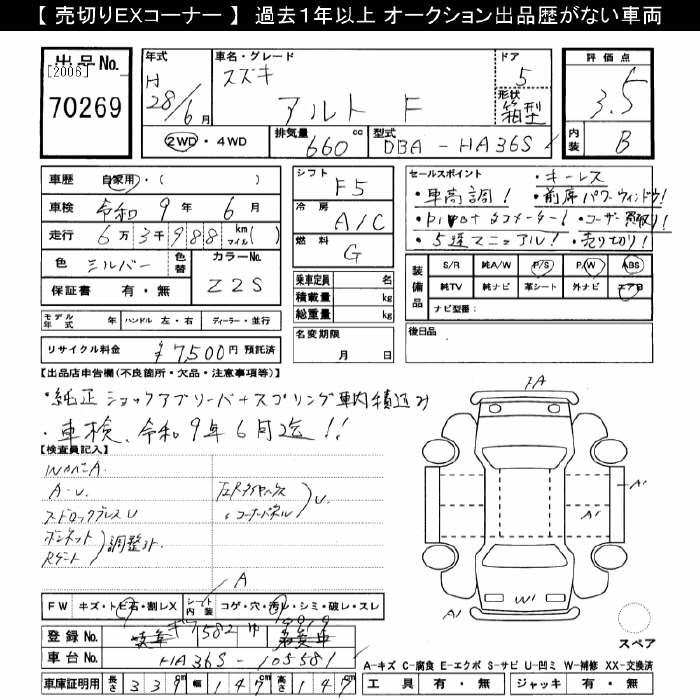 【 売切りEXコーナー 】 過去1年以上 オークション出品歴がない車両
出品No.
[2006]
70269
年式
H
28/6月
車名・グレード
スズキ
アルト F
ドア
5
形状
箱型
評価点
3.5
内装
B
2WD・4WD
排気量
660cc
型式
DBA - HA36S
車歴 自家用・( )
車検 令和 9年 6月
走行 6万3千988 km マイル( )
色 シルバー
色替
カラーNo.
Z2S
保証書 有・無
モデル年式 年
ハンドル 左・右
ディーラー・並行
リサイクル料金 ¥7,500円 預託済
シフト
F5
冷房
A/C
燃料
G
乗車定員 名
積載量 kg
総重量 kg
名変期限
月 日
セールスポイント
・キーレス
・車高調! ・前席パワーウィンドウ!
・Pivotタコメーター! ・ユーザー買取り!
・5速マニュアル! ・売り切り!
装備品
S/R 純A/W P/S P/W ABS
純TV 純ナビ 革シート 外ナビ エアB
ナビ型番:
後日品
【出品店申告欄(不良箇所・欠品・注意事項等)】
・純正ショックアブソーバー+スプリング車内積込み
・車検、令和9年6月迄!!
【検査員記入】
A-U.
ボンネット
調整計
コーナーパネル
U.
A
FW キズ・トビ石・割レX
シート内装 コゲ・穴・汚レ・シミ・破レ・スレ
登録No.
1582
車台No. HA36S-105581
車庫証明用 長さ 339cm 幅 147cm 高さ 147cm
A
A1
A1
A1
W1
スペア
A-キズ C-腐食 E-エクボ S-サビ U-凹ミ W-補修 XX-交換済
工具 有・無 ジャッキ 有・無